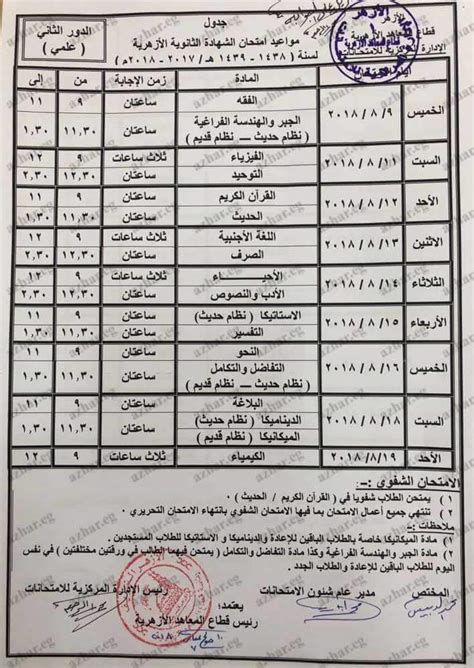 الأزهر
قطاع المعاهد الأزهرية
الإدارة المركزية للامتحانات
جدول
مواعيد امتحان الشهادة الثانوية الأزهرية
لسنة ( ١٤٣٨ - ١٤٣٩ هـ / ٢٠١٧ - ٢٠١٨م )
الدور الثاني
( علمي )
المادة زمن الإجابة من إلى
الخميس ٢٠١٨ / ٨ / ٩ الفقه ساعتان ٩ ١١
الجبر والهندسة الفراغية ( نظام حديث – نظام قديم ) ساعتان ١١,٣٠ ١,٣٠
السبت ٢٠١٨ / ٨ / ١١ الفيزياء ثلاث ساعات ٩ ١٢
التوحيد ساعتان ١٢,٣٠ ٢,٣٠
الأحد ٢٠١٨ / ٨ / ١٢ القرآن الكريم ساعتان ٩ ١١
الحديث ساعتان ١١,٣٠ ١,٣٠
الاثنين ٢٠١٨ / ٨ / ١٣ اللغة الأجنبية ثلاث ساعات ٩ ١٢
الصرف ساعتان ١٢,٣٠ ٢,٣٠
الثلاثاء ٢٠١٨ / ٨ / ١٤ الأحيـــاء ثلاث ساعات ٩ ١٢
الأدب والنصوص ساعتان ١٢,٣٠ ٢,٣٠
الأربعاء ٢٠١٨ / ٨ / ١٥ الاستاتيكا ( نظام حديث ) ساعتان ٩ ١١
التفسير ساعتان ١١,٣٠ ١,٣٠
الخميس ٢٠١٨ / ٨ / ١٦ النحو ساعتان ٩ ١١
التفاضل والتكامل ( نظام حديث – نظام قديم ) ساعتان ١١,٣٠ ١,٣٠
السبت ٢٠١٨ / ٨ / ١٨ البلاغة ساعتان ٩ ١١
الديناميكا ( نظام حديث ) الميكانيكا ( نظام قديم ) ساعتان ١١,٣٠ ١,٣٠
الأحد ٢٠١٨ / ٨ / ١٩ الكيمياء ثلاث ساعات ٩ ١٢
الامتحان الشفوي :-
١ ) يمتحن الطلاب شفويا في ( القرآن الكريم / الحديث ) .
٢ ) تنتهي جميع أعمال الامتحان بما فيها الامتحان الشفوي بانتهاء الامتحان التحريري .
ملاحظات :-
١ ) مادة الميكانيكا خاصة بالطلاب الباقين للإعادة والديناميكا والاستاتيكا للطلاب المستجدين .
٢ ) مادة الجبر والهندسة الفراغية وكذا مادة التفاضل والتكامل ( يمتحن فيهما الطالب في ورقتين مختلفتين ) في نفس
اليوم للطلاب الباقين للإعادة والطلاب الجدد .
المختص مدير عام شئون الامتحانات رئيس الإدارة المركزية للامتحانات
يعتمد؛
رئيس قطاع المعاهد الأزهرية
azhar.eg